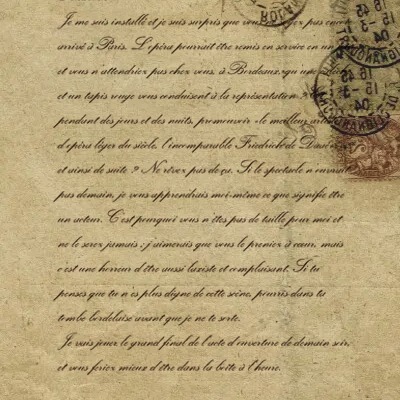 Je me suis installé et je suis surpris que vous pas
arrivé à Paris. L'opéra pourrait être remis en service en un
et vous n'attendriez pas chez vous, à Bordeaux, qu'une
et un tapis rouge vous conduisent à la représentation
pendant des jours et des nuits, promouvoir « le meilleur
d'opéra léger du siècle, l'incomparable Friedrich de
et ainsi de suite ? Ne rêvez pas de ça. Si le spectacle n
pas demain, je vous apprendrais moi-même ce que signifie être
un acteur. C'est pourquoi vous n'êtes pas de taille pour moi et
ne le serez jamais ; j'aimerais que vous le preniez à cœur, mais
c'est une horreur d'être aussi laxiste et complaisant. Si tu
penses que tu n'es plus digne de cette scène, pourris dans ta
tombe bordelaise avant que je ne te sorte.
Je vais jouer le grand final de l'acte d'ouverture de demain soir,
et vous feriez mieux d'être dans la boîte à l'heure.